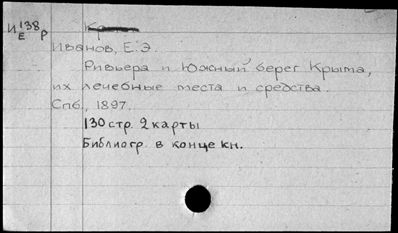 И 138 Р
Е
Иванов, Е.Э.
Ривьера и Южный берег Крыма,
их лечебные места и средства.
Спб., 1897.
130 стр. 2 карты
Библиогр. в конце кн.